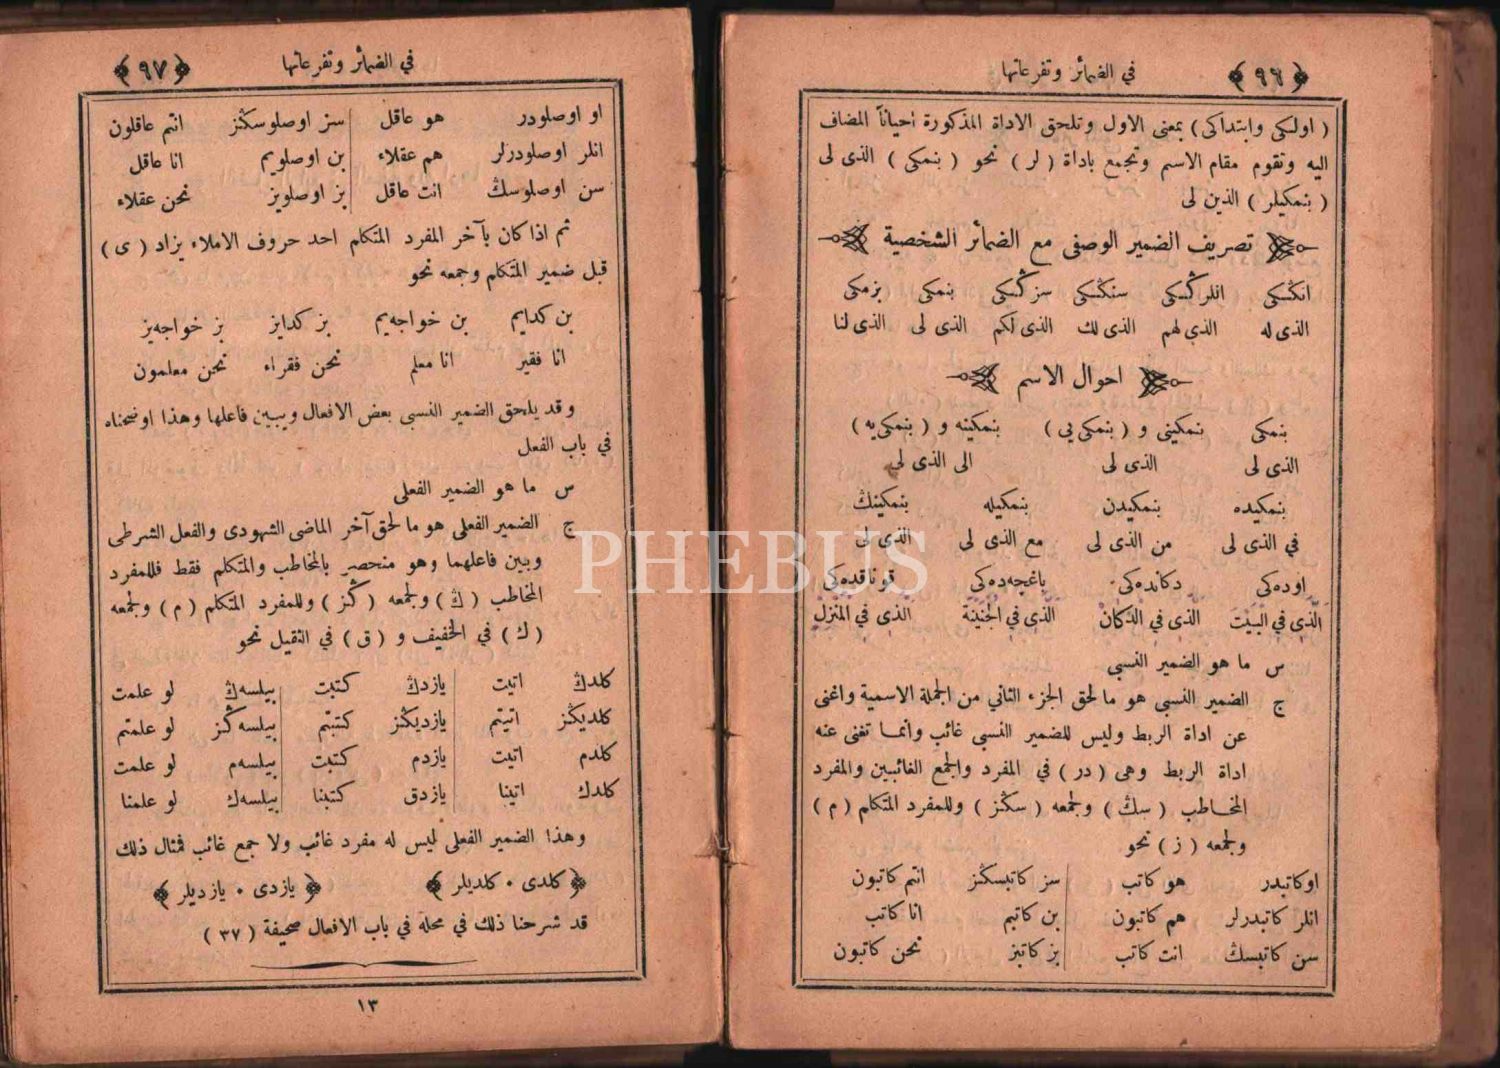 ﴿ ٩٦ ﴾ في الضمائر وتفرعاتها
( اولكى وابتداكى ) بمعنى الاول وتلحق الاداة المذكورة احياناً المضاف
اليه وتقوم مقام الاسم وتجمع باداة ( لر ) نحو ( بنمكى ) الذى لى
( بنمكيلر ) الذين لى
تصريف الضمير الوصفى مع الضمائر الشخصية
انكسكى انلركسكى سنكسكى سزكسكى بنمكى بزمكى
الذى له الذى لهم الذى لك الذى لكم الذى لى الذى لنا
احوال الاسم
بنمكى بنمكينى و ( بنمكى يى ) بنمكينه و ( بنمكى يه )
الذى لى الذى لى الى الذى لى
بنمكيده بنمكيدن بنمكيله بنمكينڭ
في الذى لى من الذى لى مع الذى لى الذى لى
اوده‌كى دكانده‌كى باغچه‌ده‌كى قوناقده‌كى
الذى في البيت الذى في الدكان الذى في الجنينة الذى في المنزل
س ما هو الضمير النسبى
ج الضمير النسبى هو ما لحق الجزء الثانى من الجملة الاسمية واغنى
عن اداة الربط وليس للضمير النسبى غائب وانما تغنى عنه
اداة الربط وهى ( در ) في المفرد والجمع الغائبين والمفرد
المخاطب ( سڭ ) ولجمعه ( سڭز ) وللمفرد المتكلم ( م )
ولجمعه ( ز ) نحو
اوكاتبدر هو كاتب سز كاتبسڭز انتم كاتبون
انلر كاتبدرلر هم كاتبون بن كاتبم انا كاتب
سن كاتبسڭ انت كاتب بز كاتبز نحن كاتبون
في الضمائر وتفرعاتها ﴿ ٩٧ ﴾
او اوصلودر هو عاقل سز اوصلوسڭز انتم عاقلون
انلر اوصلودرلر هم عقلاء بن اوصلويم انا عاقل
سن اوصلوسڭ انت عاقل بز اوصلويز نحن عقلاء
ثم اذا كان بآخر المفرد المتكلم احد حروف الاملاء يزاد ( ى )
قبل ضمير المتكلم وجمعه نحو
بن كدايم بن خواجه‌يم بز كدايز بز خواجه‌يز
انا فقير انا معلم نحن فقراء نحن معلمون
وقد يلحق الضمير النسبى بعض الافعال ويبين فاعلها وهذا اوضحناه
في باب الفعل
س ما هو الضمير الفعلى
ج الضمير الفعلى هو ما لحق آخر الماضى الشهودى والفعل الشرطى
وبين فاعلهما وهو منحصر بالمخاطب والمتكلم فقط فللمفرد
المخاطب ( ڭ ) ولجمعه ( ڭز ) وللمفرد المتكلم ( م ) ولجمعه
( ك ) في الخفيف و ( ق ) في الثقيل نحو
كلدڭ اتيت يازدڭ كتبت بيلسه‌ڭ لو علمت
كلديڭز اتيتم يازديڭز كتبتم بيلسه‌ڭز لو علمتم
كلدم اتيت يازدم كتبت بيلسه‌م لو علمت
كلدك اتينا يازدق كتبنا بيلسه‌ك لو علمنا
وهذا الضمير الفعلى ليس له مفرد غائب ولا جمع غائب فمثال ذلك
﴿ كلدى . كلديلر ﴾ ﴿ يازدى . يازديلر ﴾
قد شرحنا ذلك في محله في باب الافعال صحيفة ( ٣٧ )
١٣
PHEBUS